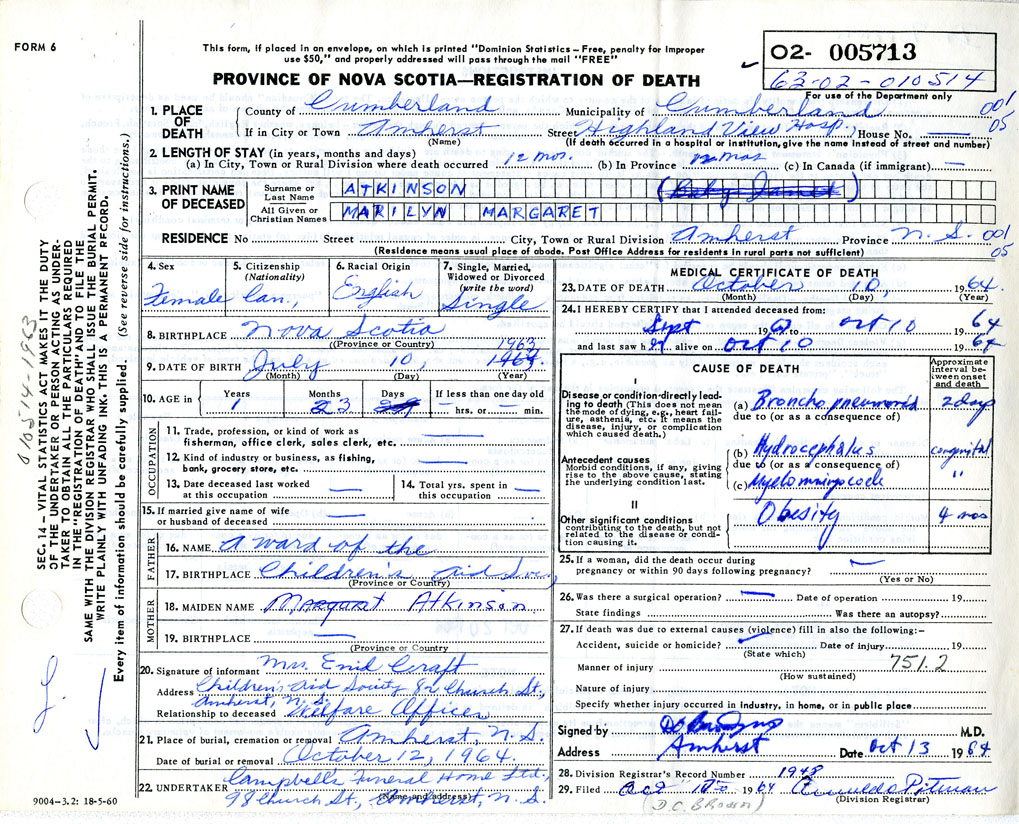 FORM 6
This form, if placed in an envelope, on which is printed "Dominion Statistics – Free, penalty for improper
use $50," and properly addressed will pass through the mail "FREE"
PROVINCE OF NOVA SCOTIA—REGISTRATION OF DEATH
02- 005713
63-02-010514
For use of the Department only
1. PLACE OF DEATH
County of Cumberland Municipality of Cumberland 001
If in City or Town Amherst Street Highland View Hosp. House No. 05
(Name) (If death occurred in a hospital or institution, give the name instead of street and number)
2. LENGTH OF STAY (in years, months and days)
(a) In City, Town or Rural Division where death occurred 12 mos. (b) In Province 12 mos (c) In Canada (if immigrant) —
3. PRINT NAME OF DECEASED
Surname or Last Name ATKINSON
All Given or Christian Names MARILYN MARGARET
RESIDENCE No Street City, Town or Rural Division Amherst Province N. S. 001
05
(Residence means usual place of abode. Post Office Address for residents in rural parts not sufficient)
4. Sex
Female
5. Citizenship
(Nationality)
Can,
6. Racial Origin
English
7. Single, Married, Widowed or Divorced
(write the word)
Single
8. BIRTHPLACE Nova Scotia
(Province or Country)
1963
9. DATE OF BIRTH July 10,
(Month) (Day) (Year)
10. AGE in Years 1 Months 3 Days If less than one day old
— hrs. or — min.
OCCUPATION
11. Trade, profession, or kind of work as
fisherman, office clerk, sales clerk, etc. —
12. Kind of industry or business, as fishing,
bank, grocery store, etc. —
13. Date deceased last worked
at this occupation —
14. Total yrs. spent in
this occupation —
15. If married give name of wife
or husband of deceased —
FATHER
16. NAME a ward of the
17. BIRTHPLACE Children's Aid Soc.
(Province or Country)
MOTHER
18. MAIDEN NAME Margaret Atkinson
19. BIRTHPLACE —
(Province or Country)
20. Signature of informant Mrs. Enid Craft
Address Children's Aid Society 82 Church St.,
Amherst, N. S.
Relationship to deceased Welfare Officer
21. Place of burial, cremation or removal Amherst N. S.
Date of burial or removal October 12, 1964.
22. UNDERTAKER Campbell's Funeral Home Ltd.,
(Name and address)
98 Church St., Amherst, N. S.
MEDICAL CERTIFICATE OF DEATH
23. DATE OF DEATH October 10, 1964.
(Month) (Day) (Year)
24. I HEREBY CERTIFY that I attended deceased from:
Sept 19 to Oct 10 1964
and last saw h alive on Oct 10 1964
CAUSE OF DEATH
Approximate interval between onset and death
I
Disease or condition directly leading to death (This does not mean the mode of dying, e.g., heart failure, asthenia, etc. It means the disease, injury, or complication which caused death.)
(a) Bronchopneumonia 2 days
due to (or as a consequence of)
Antecedent causes
Morbid conditions, if any, giving rise to the above cause, stating the underlying condition last.
(b) Hydrocephalus congenital
due to (or as a consequence of)
(c) Myelomeningocele "
II
Other significant conditions contributing to the death, but not related to the disease or condition causing it.
Obesity 4 mos
25. If a woman, did the death occur during
pregnancy or within 90 days following pregnancy? —
(Yes or No)
26. Was there a surgical operation? — Date of operation 19
State findings Was there an autopsy?
27. If death was due to external causes (violence) fill in also the following:–
Accident, suicide or homicide? Date of injury 19
(State which)
Manner of injury 751.2
(How sustained)
Nature of injury
Specify whether injury occurred in industry, in home, or in public place
Signed by M.D.
Address Amherst Date Oct 13 1964
28. Division Registrar's Record Number 1948
29. Filed Oct 1964
(Division Registrar)
(D.C. Brown)
SEC. 14 – VITAL STATISTICS ACT MAKES IT THE DUTY
OF THE UNDERTAKER OR PERSON ACTING AS UNDER-
TAKER TO OBTAIN ALL THE PARTICULARS REQUIRED
IN THE "REGISTRATION OF DEATH" AND TO FILE THE
SAME WITH THE DIVISION REGISTRAR WHO SHALL ISSUE THE BURIAL PERMIT.
WRITE PLAINLY WITH UNFADING INK. THIS IS A PERMANENT RECORD.
Every item of information should be carefully supplied. (See reverse side for instructions.)
9004-3.2: 18-5-60